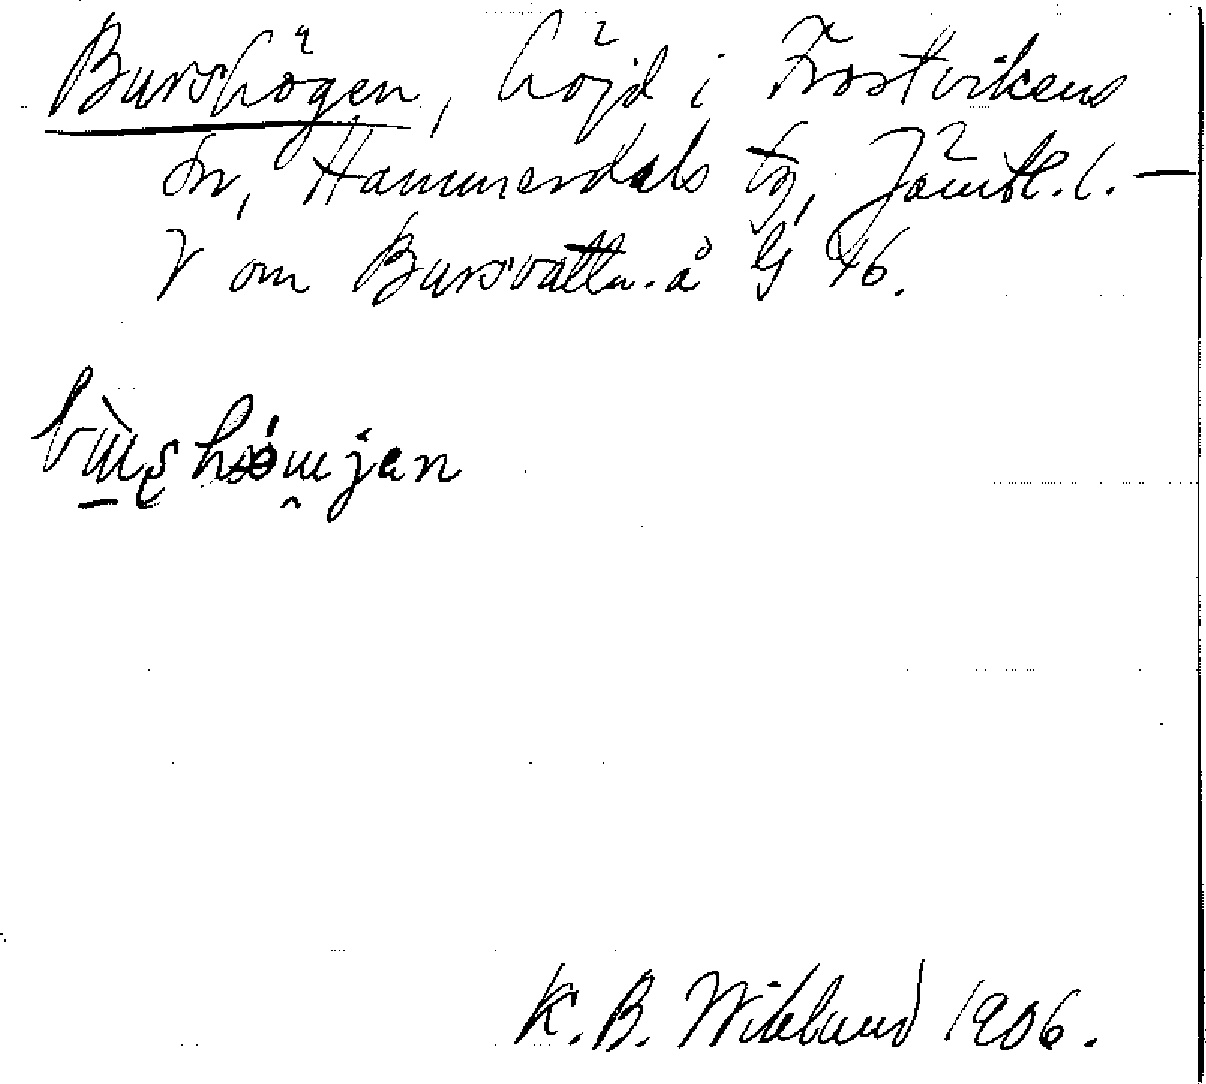 Burshögen, höjd i Frostvikens
sn, Hammerdals tg, Jämtl. l. —
V om Bursvattu. å G 46.
K. B. Wiklund 1906.